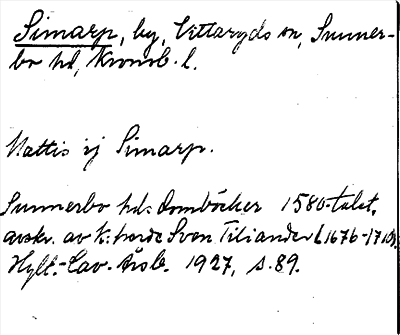 Simarp, by, Vittaryds sn, Sunner-
bo hd, Kronob. l.
Mattis ij Simarp.
Sunnerbo hds domböcker 1580-talet,
avskr. av k:herde Sven Tiliander (1676-1710).
Hylt.-Cav. Årsb. 1927, s. 89.